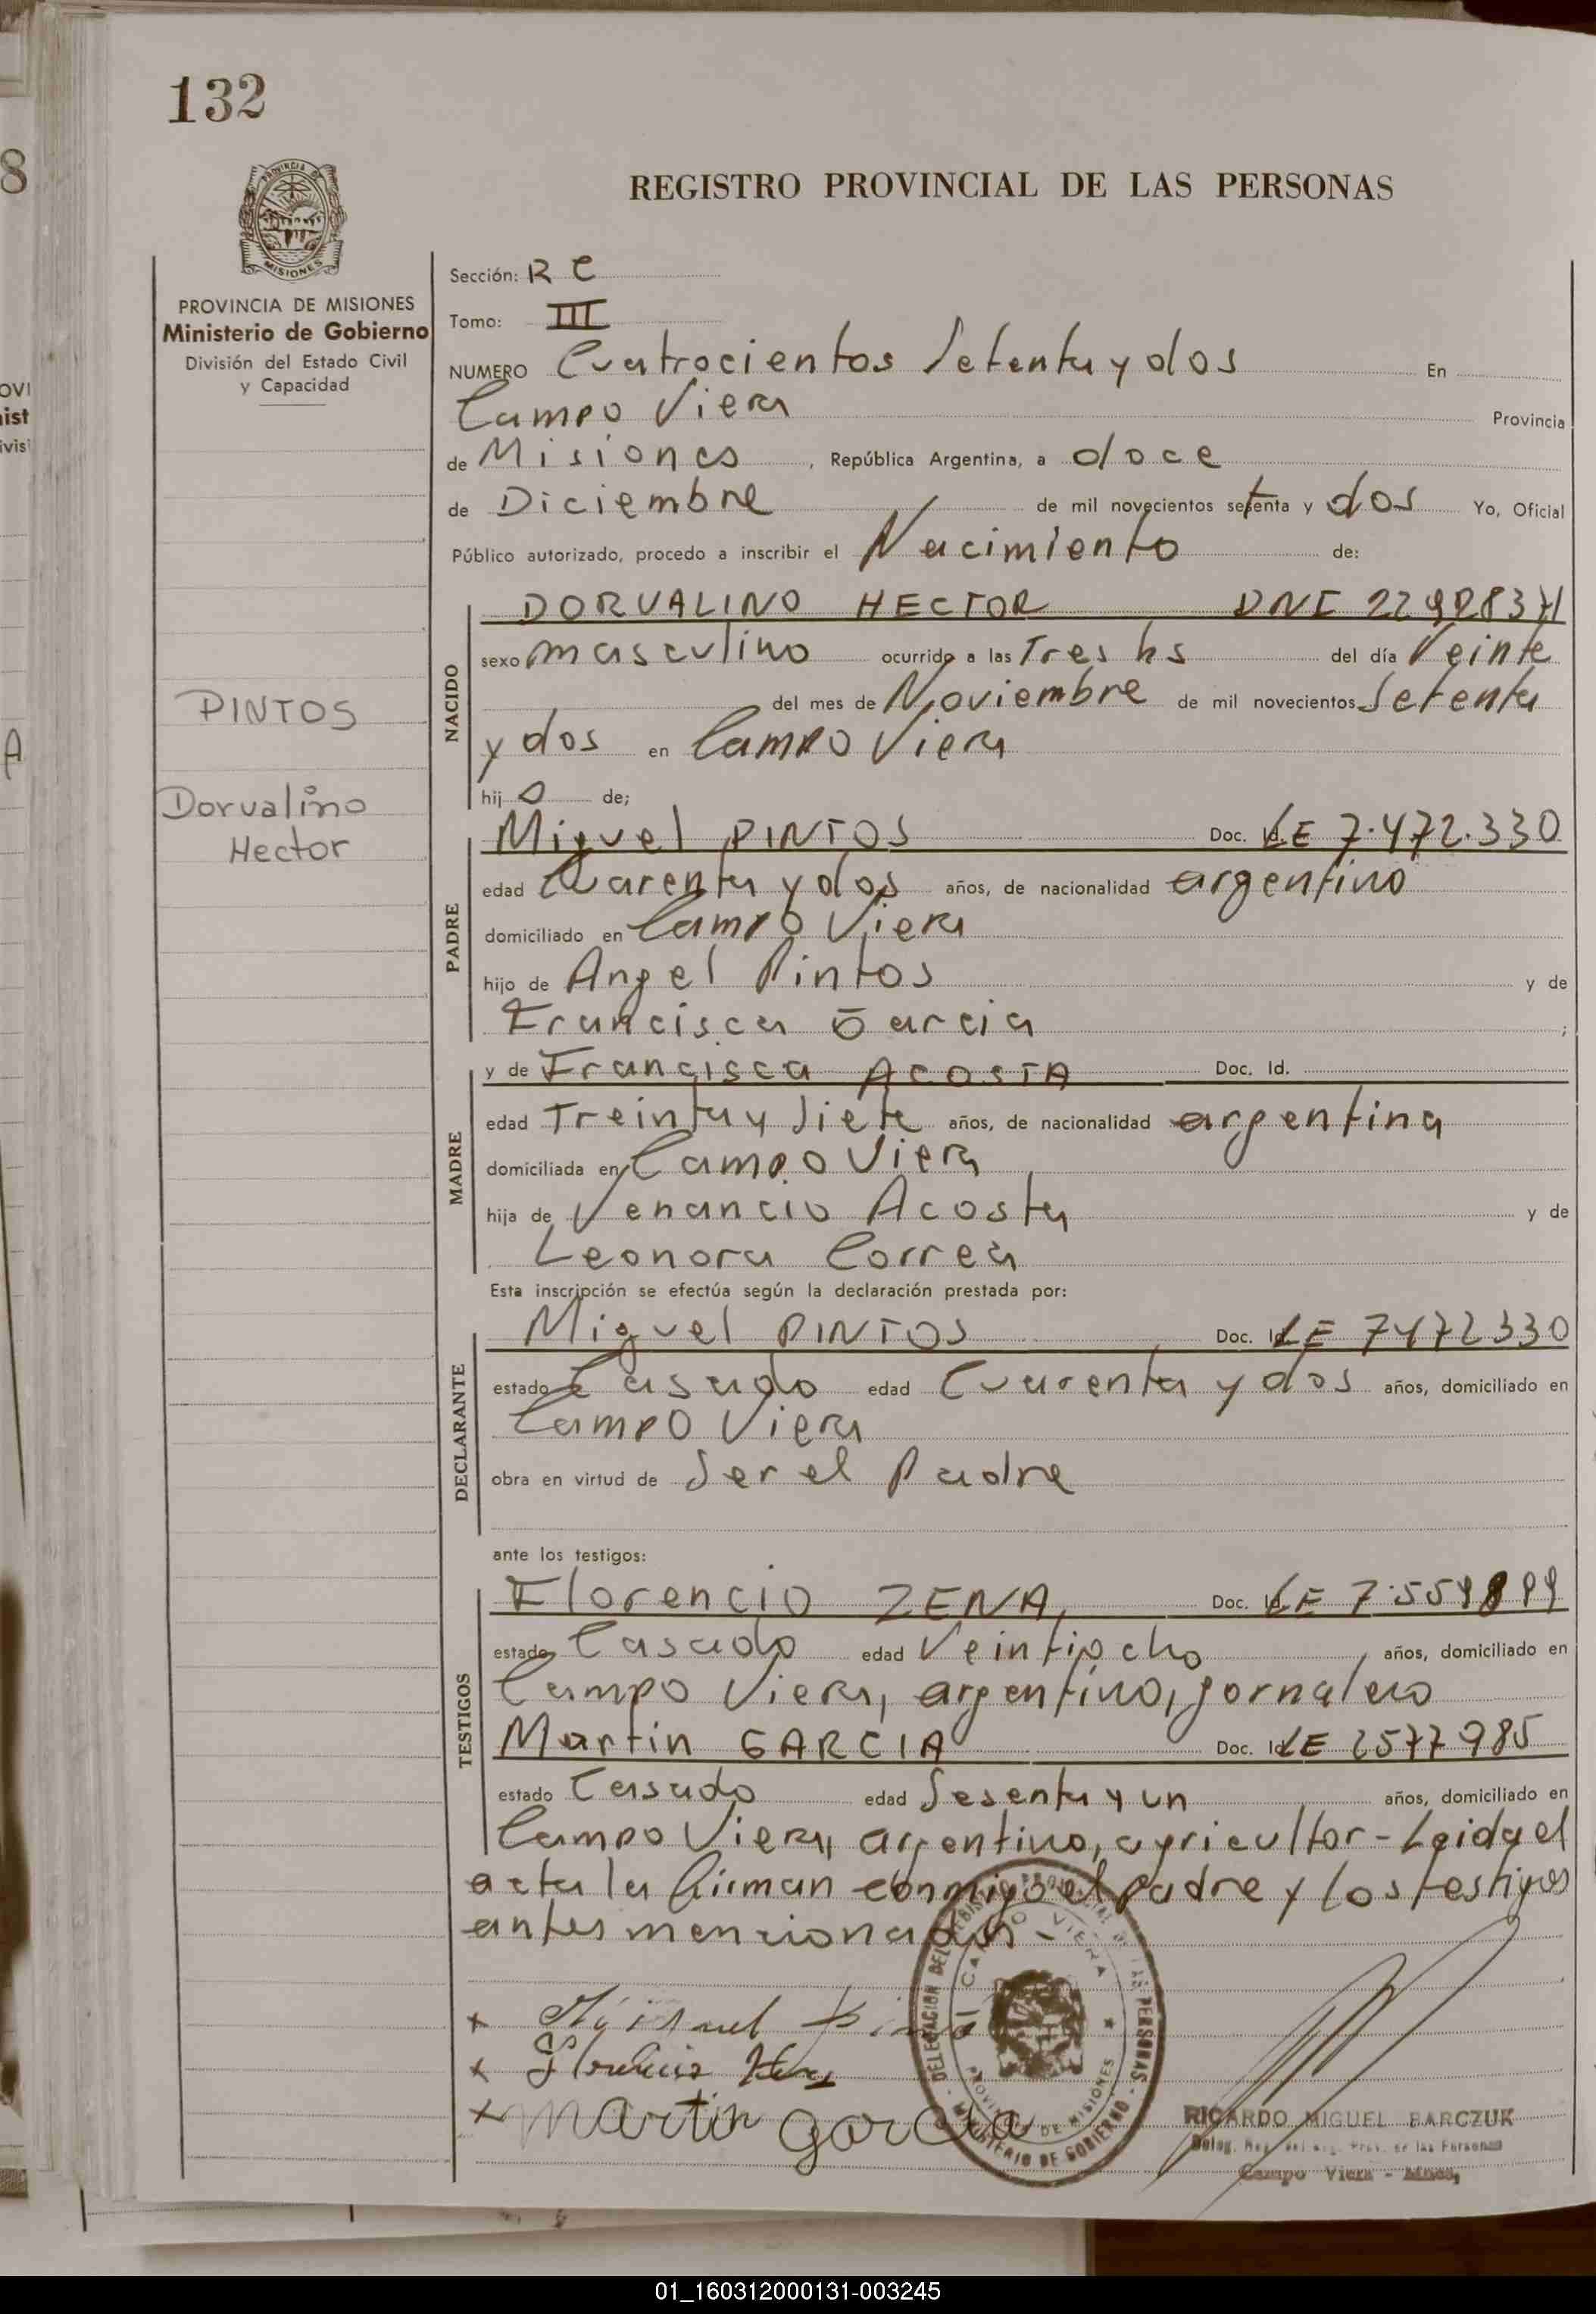 132
REGISTRO PROVINCIAL DE LAS PERSONAS
PROVINCIA DE MISIONES
Ministerio de Gobierno
División del Estado Civil
y Capacidad
Sección: R C
Tomo: III
NUMERO Cuatrocientos Setenta y dos En
Campo Viera Provincia
de Misiones, República Argentina, a doce
de Diciembre de mil novecientos setenta y dos Yo, Oficial
Público autorizado, procedo a inscribir el Nacimiento de:
PINTOS
Dorvalino
Hector
NACIDO
DORVALINO HECTOR DNI
sexo masculino ocurrido a las Tres hs del día Veinte
del mes de Noviembre de mil novecientos Setenta
y dos en Campo Viera
hij o de;
PADRE
Miguel PINTOS Doc. Id. LE 7.472.330
edad Cuarenta y dos años, de nacionalidad argentino
domiciliado en Campo Viera
hijo de Angel Pintos y de
Francisca Garcia ;
MADRE
y de Francisca ACOSTA Doc. Id.
edad Treinta y Siete años, de nacionalidad argentina
domiciliada en Campo Viera
hija de Venancio Acosta y de
Leonora Correa
Esta inscripción se efectúa según la declaración prestada por:
DECLARANTE
Miguel PINTOS Doc. Id. LE 7472330
estado Casado edad Cuarenta y dos años, domiciliado en
Campo Viera
obra en virtud de Ser el Padre
ante los testigos:
TESTIGOS
Florencio ZENA, Doc. Id. LE
estado Casado edad Veintiocho años, domiciliado en
Campo Viera, argentino, jornalero
Martin GARCIA Doc. Id. LE 2577985
estado Casado edad Sesenta y un años, domiciliado en
Campo Viera, argentino, agricultor - Leida el
acta la firman conmigo el padre y los testigos
antes mencionados -
x Miguel Pintos
x
x martin garcia
DELEGACION DEL REGISTRO PROVINCIAL DE LAS PERSONAS - MINISTERIO DE GOBIERNO
CAMPO VIERA PROVINCIA DE MISIONES
RICARDO MIGUEL BARCZUK
Campo Viera - Mnes,
01_160312000131-003245